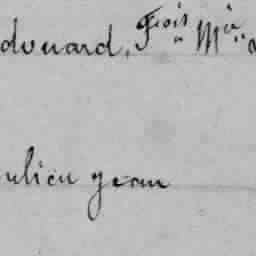 douard, Fcois Mie
ulien Jean